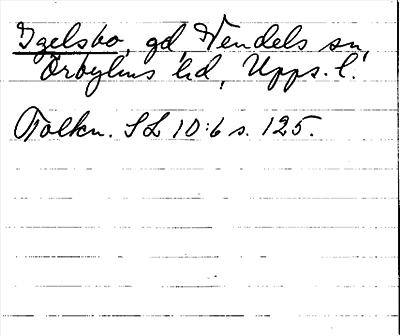 Igelsbo, gd, Vendels sn,
Örbyhus hd, Upps. l.
Tolkn. SL 10:6 s. 125.